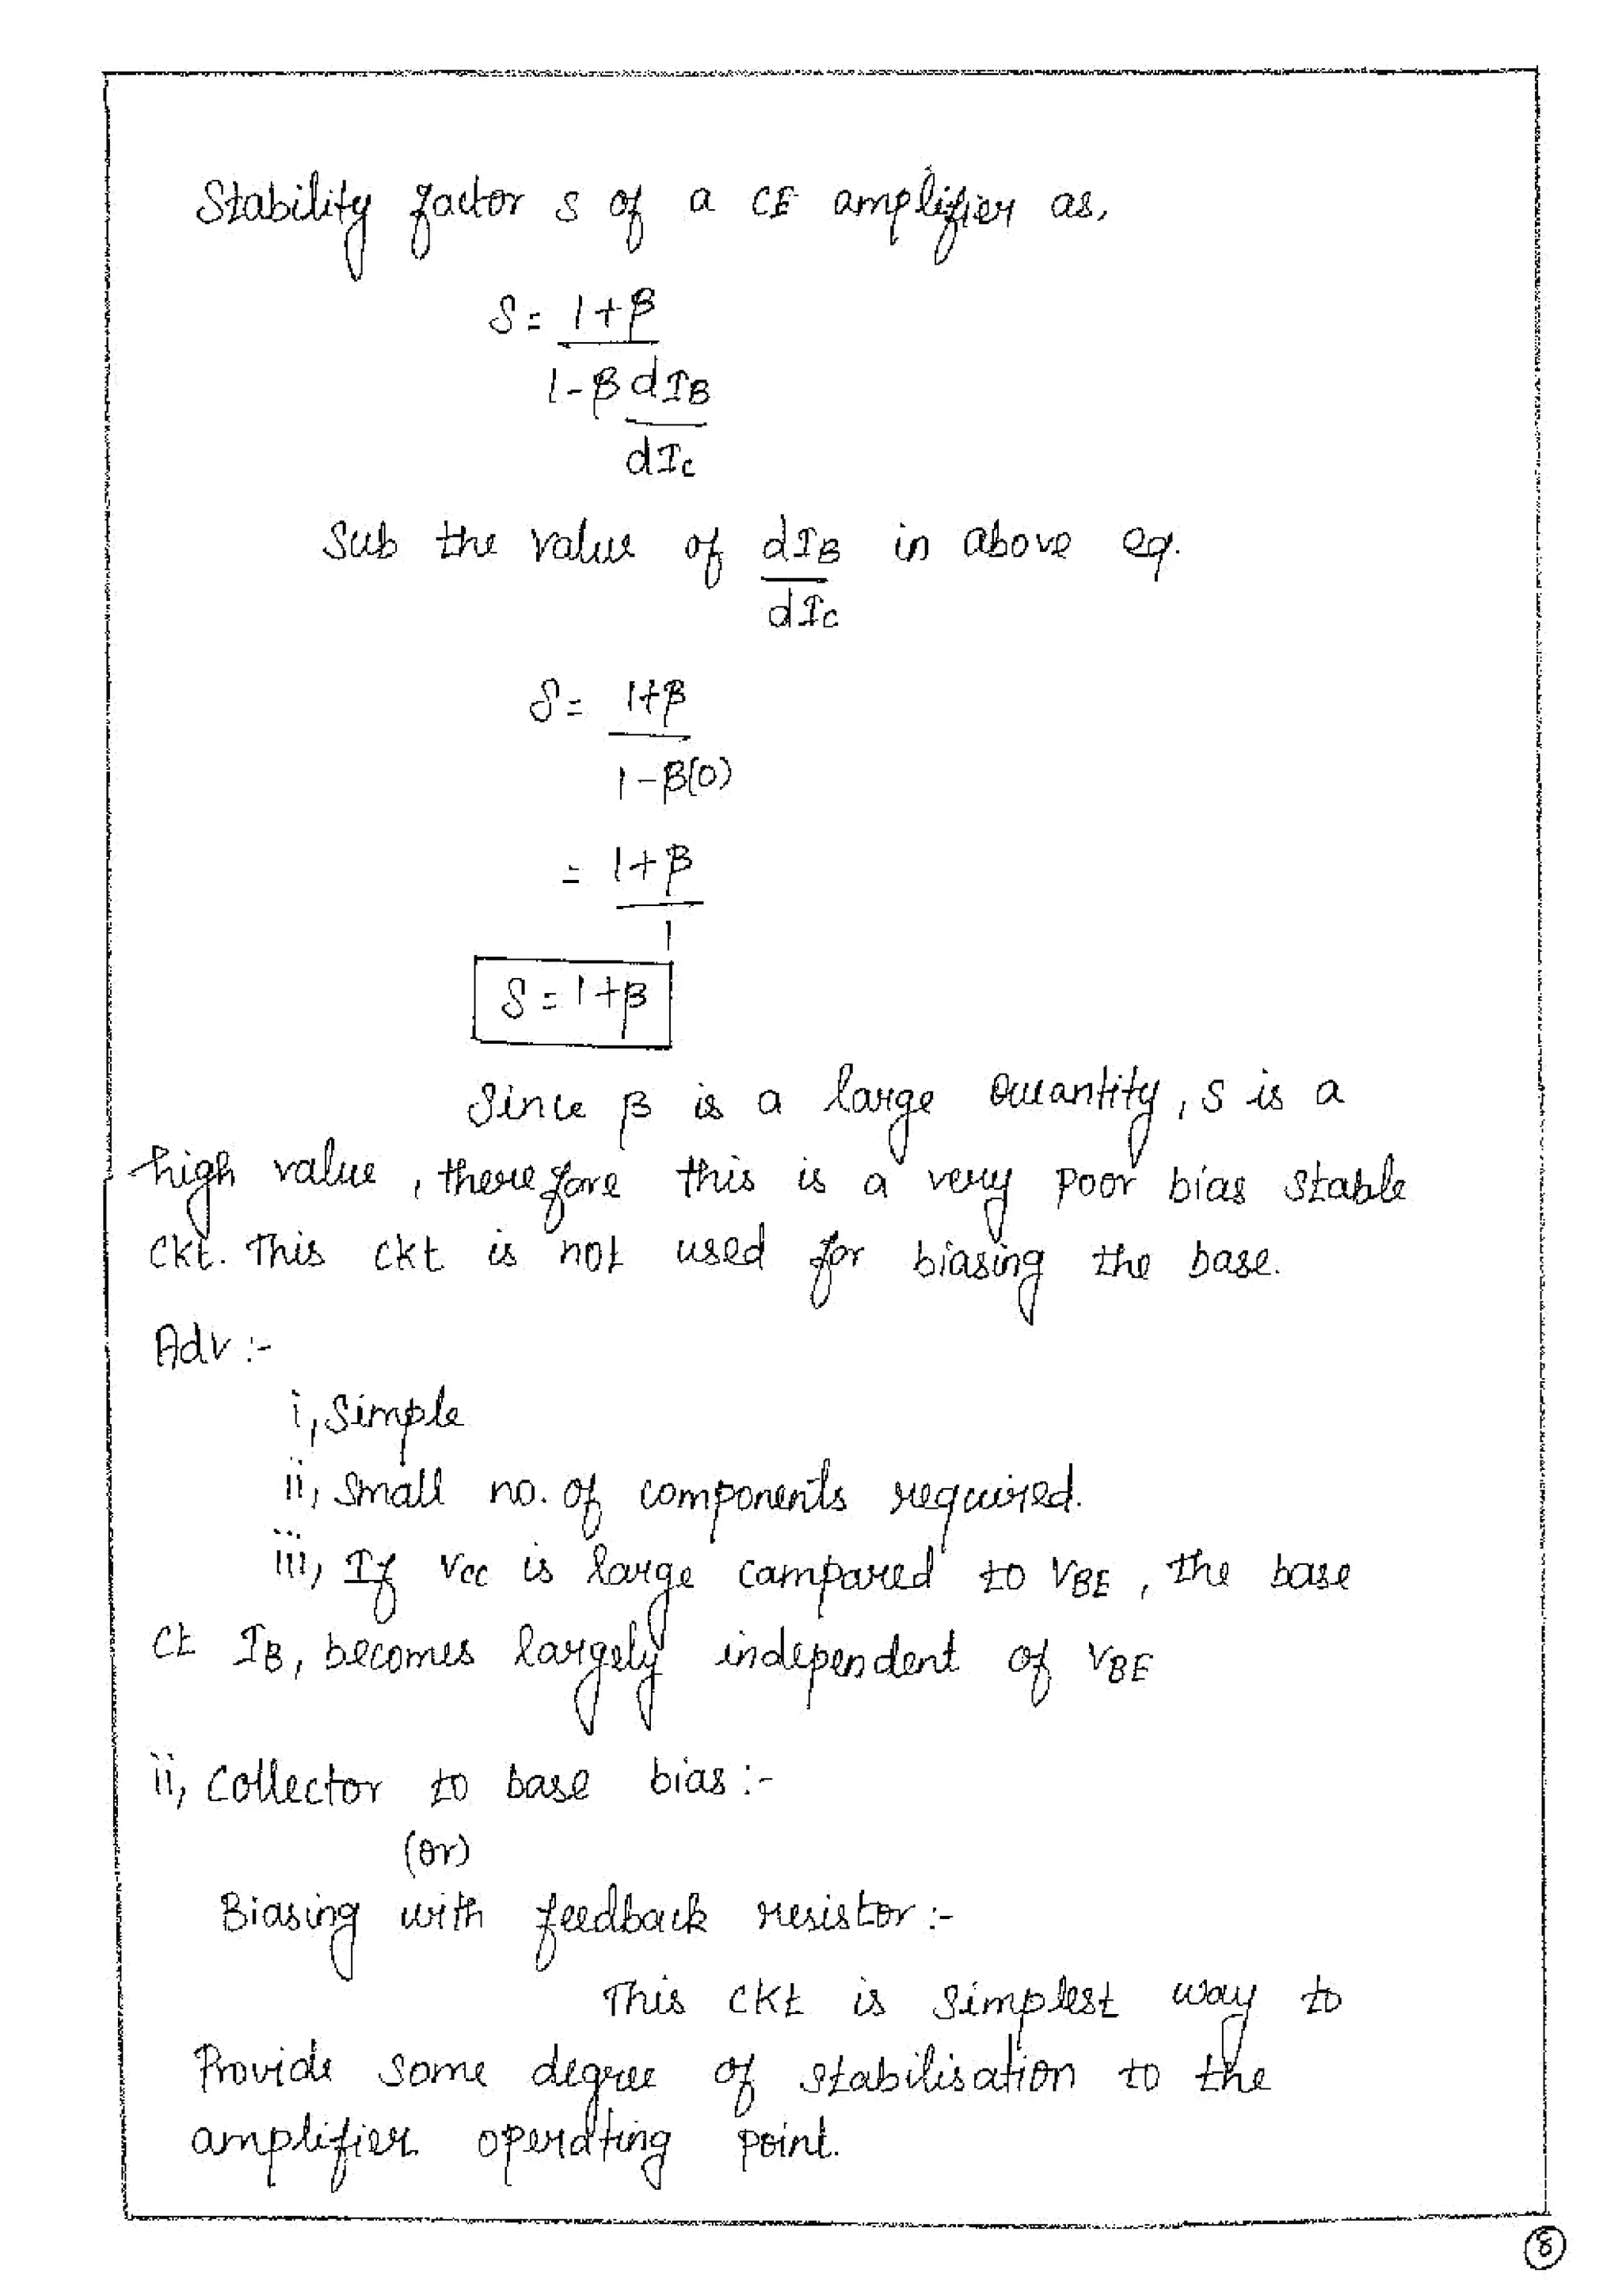 Stability factor S of a CE amplifier as,
S = 1+β
1-β dIB
dIc
Sub the value of dIB in above eq.
dIc
S = 1+β
1-β(0)
= 1+β
1
S = 1+β
Since β is a large Quantity, S is a
high value, therefore this is a very poor bias stable
ckt. This ckt is not used for biasing the base.
Adv :-
i, Simple
ii, Small no. of components required.
iii, If Vcc is large compared to VBE, the base
Ct IB, becomes largely independent of VBE
ii, Collector to base bias :-
(or)
Biasing with feedback resistor :-
This ckt is simplest way to
Provide some degree of stabilisation to the
amplifier operating point.
8